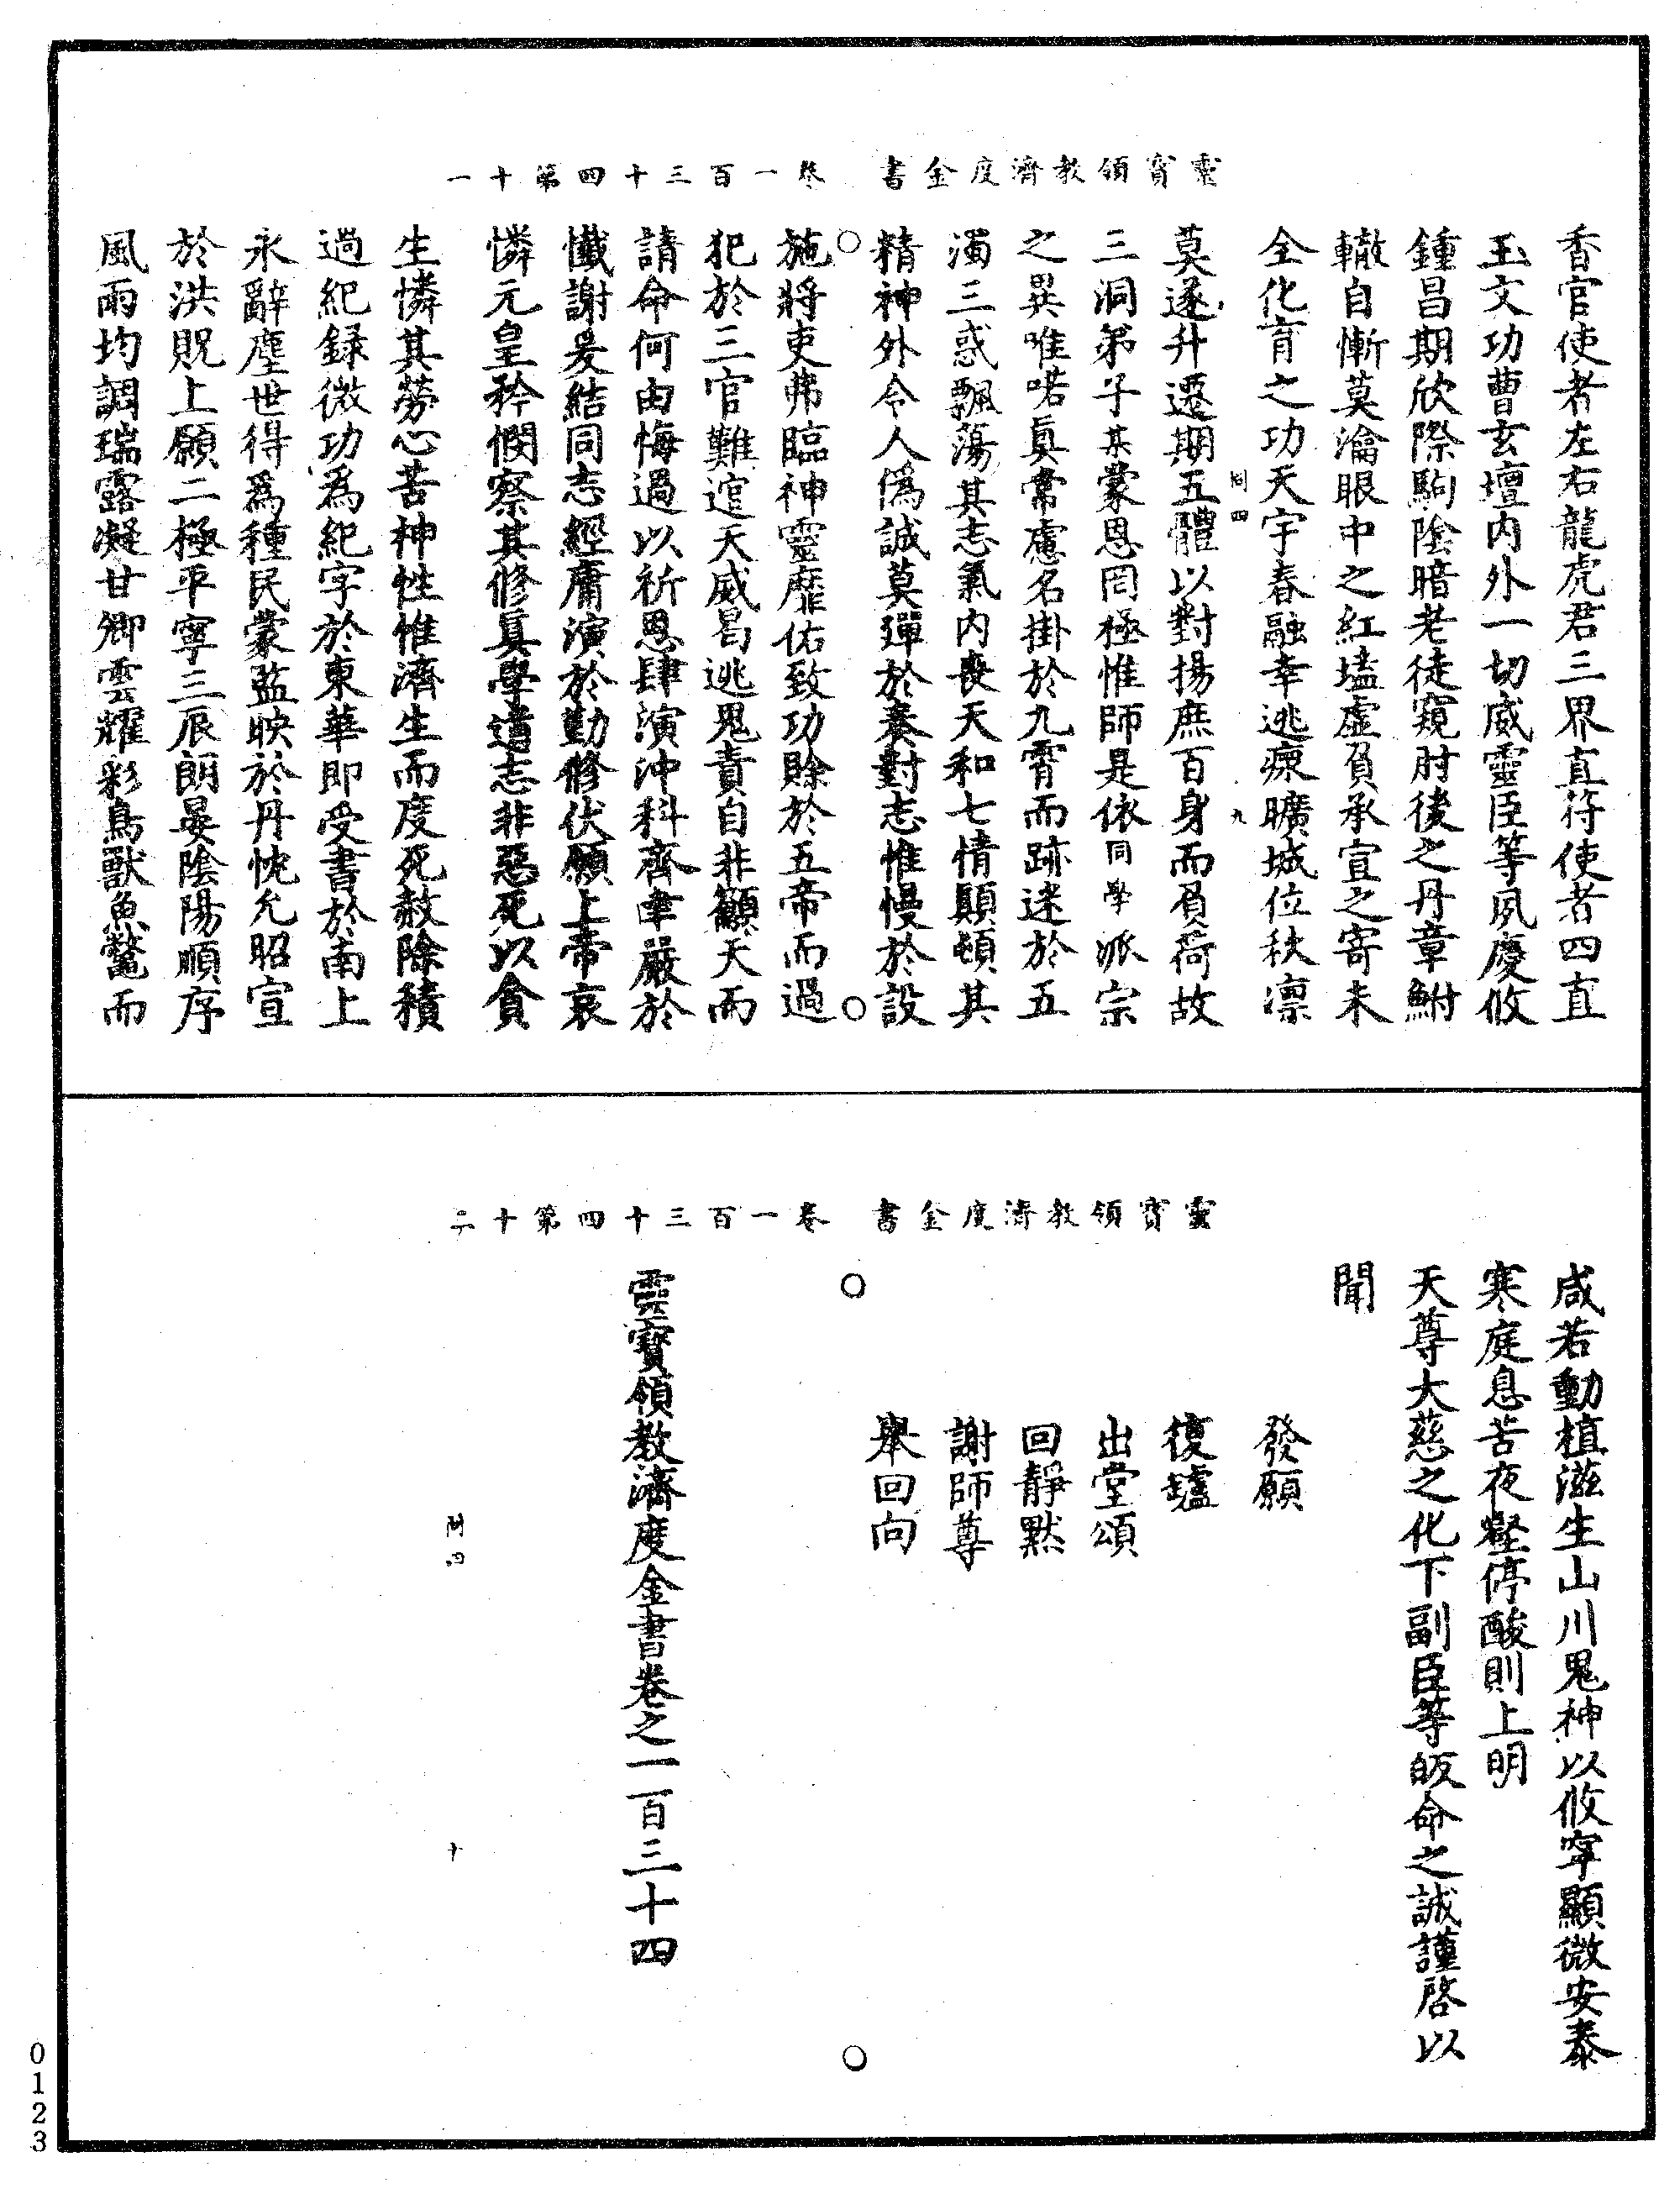 靈寶領教濟度金書　卷一百三十四第十一
香官使者左右龍虎君三界直符使者四直
玉文功曹玄壇內外一切威靈臣等夙慶攸
鍾昌期欣際駒陰暗老徒窺肘後之丹章鮒
轍自慚莫瀹眼中之紅壒虛負承宣之寄未
全化育之功天宇春融幸逃瘝曠城位秋凛
同四　九
莫遂升遷期五體以對揚庶百身而負荷故
三洞弟子某蒙恩罔極惟師是依同學派宗
之異唯喏真常處名掛於九霄而跡迷於五
濁三惑飄蕩其志氣內喪天和七情顛頓其
精神外令人偽誠莫殫於養對志惟慢於設
施將吏弗臨神靈靡佑致功賒於五帝而過
犯於三官難逭天威曷逃鬼責自非籲天而
請命何由悔過以祈恩肆演沖科齊聿嚴於
懺謝爰結同志經庸演於勤修伏願上帝哀
憐元皇矜憫察其修真學道志非惡死以貪
生憐其勞心苦神性惟濟生而度死赦除積
過紀錄微功為紀字於東華即受書於南上
永辭塵世得為種民蒙監映於丹忱允昭宣
於洪貺上願二極平寧三辰朗晏陰陽順序
風雨均調瑞露凝甘卿雲耀彩鳥獸魚鱉而
靈寶領教濟度金書　卷一百三十四第十二
咸若動植滋生山川鬼神以攸寧顯微安泰
寒庭息苦夜壑停酸則上明
天尊大慈之化下副臣等皈命之誠謹啓以
聞
發願
復罏
出堂頌
回靜默
謝師尊
舉回向
靈寶領教濟度金書卷之一百三十四
同四　十
0123